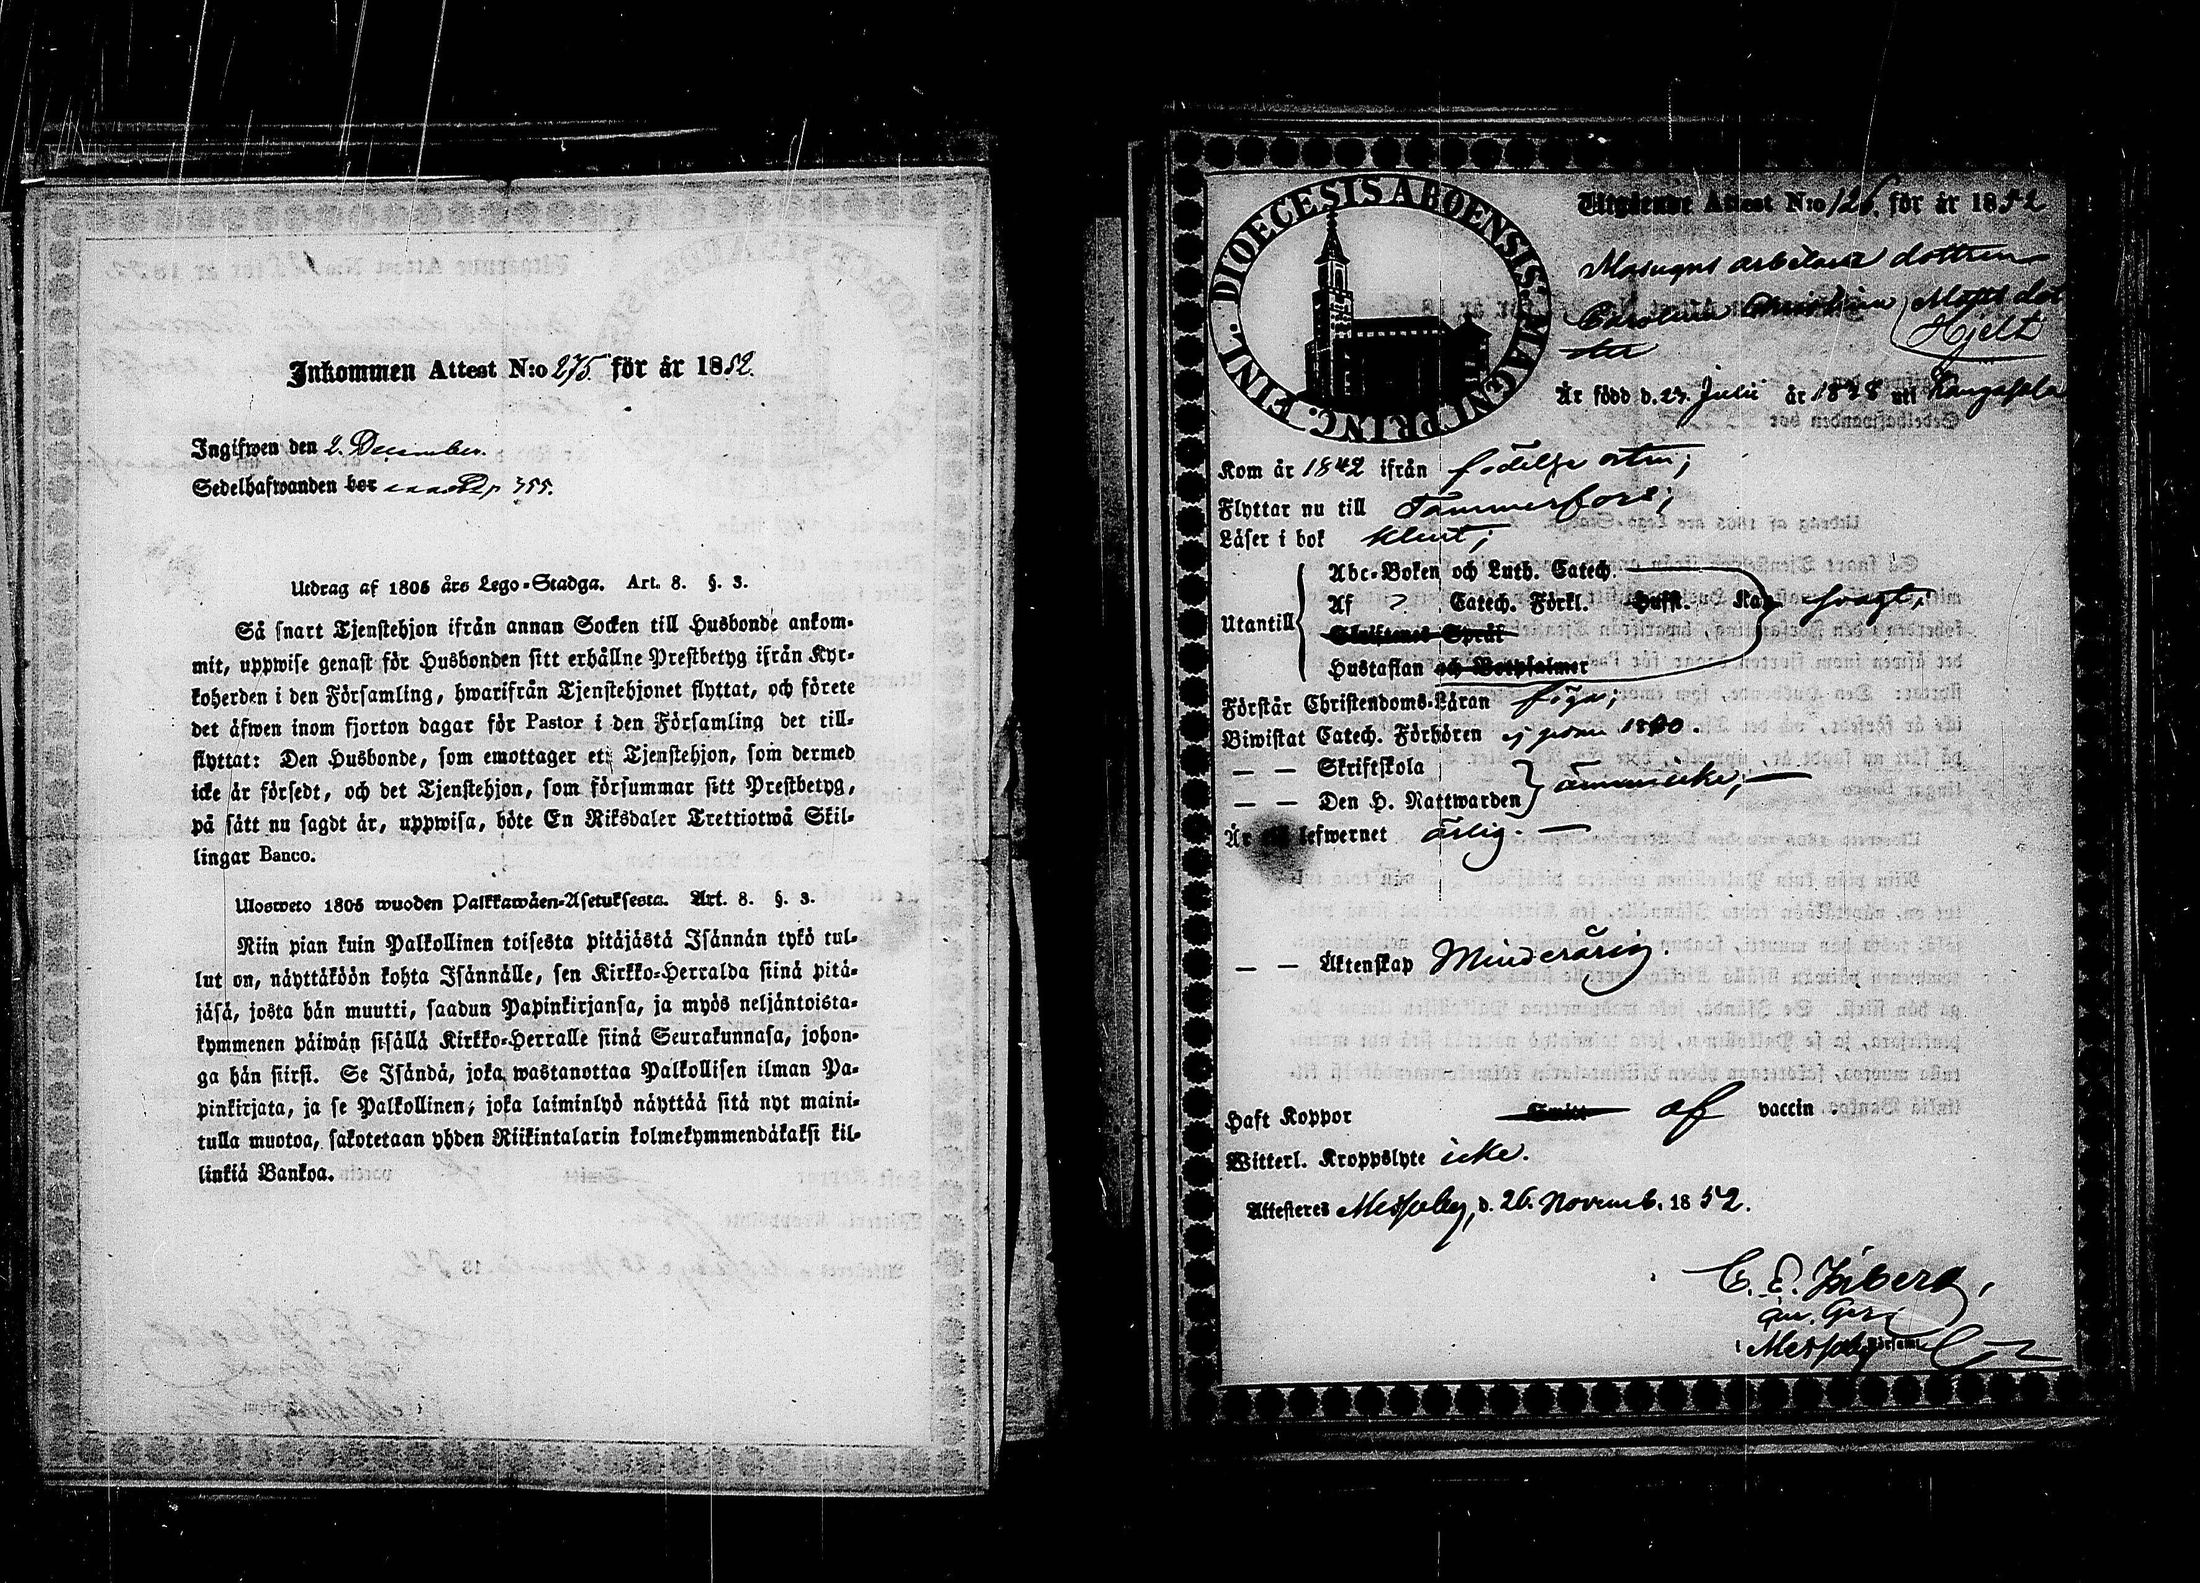 Inkommen Attest N:o 275. för år 1852.
Ingifwen den 2. December.
Sedelhafwanden bor 355.
Utdrag af 1805 års Lego-Stadga. Art. 8. §. 3.
Så snart Tjenstehjon ifrån annan Socken till Husbonde ankom-
mit, uppwise genast för Husbonden sitt erhållne Prestbetyg ifrån Kyr-
koherden i den Församling, hwarifrån Tjenstehjonet flyttat, och förete
det äfwen inom fjorton dagar för Pastor i den Församling det till-
flyttat: Den Husbonde, som emottager ett Tjenstehjon, som dermed
icke är försedt, och det Tjenstehjon, som försummar sitt Prestbetyg,
på sätt nu sagdt är, uppwisa, böte En Riksdaler Trettiotwå Skil-
lingar Banco.
Ulosweto 1805 wuoden Palkkawäen-Asetuksesta. Art. 8. §. 3.
Niin pian kuin Palkollinen toisesta pitäjästä Isännän tykö tul-
lut on, näyttäköön kohta Isännälle, sen Kirkko-Herralda siinä pitä-
jäsä, josta hän muutti, saadun Papinkirjansa, ja myös neljäntoista-
kymmenen päiwän sisällä Kirkko-Herralle siinä Seurakunnasa, johon-
ga hän siirsi. Se Isändä, joka wastanottaa Palkollisen ilman Pa-
pinkirjata, ja se Palkollinen, joka laiminlyö näyttää sitä nyt maini-
tulla muotoa, sakotetaan yhden Riikintalarin kolmekymmendäkaksi kil-
linkiä Bankoa.
DIOECESIS ABOENSIS MAGNI PRINC. FINL.
Utgående Attest N:o 126. för år 1852
Masugns arbetare dottren
Carolina Matts dot
ter Hjelt
Är född d. 23. Julii år 1838 uti Kangasala
Kom år 1842 ifrån födelse orten;
Flyttar nu till Tammerfors;
Läser i bok klent;
Utantill
Abc-Boken och Luth. Catech.
Af Catech. Förkl. Hufst. Kap. svagt;
Skriftenes Språk
Hustaflan och Botpsalmer
Förstår Christendoms-Läran föga;
Biwistat Catech. Förhören ej sedan 1850.
— — Skriftskola
— — Den H. Nattwarden ännu icke;
Är till lefwernet ärlig.
— — Äktenskap Minderårig.
Haft Koppor Smitt af vaccin
Witterl. Kroppslyte icke.
Attesteres Messuby, d. 26. Novemb. 1852.
C. E.
i Messuby Församl.